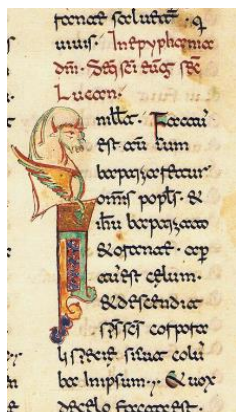 uiuis. In epyphania
dni. sci eug sec
Lucam.
Factu
est au cum
baptizaretur
omis popls. &
ihu baptizato
& orante. aper
tu est celum.
& descendit
sps scs corpora
li specie sicut colu
ba in ipsum. & uox
de celo facta est